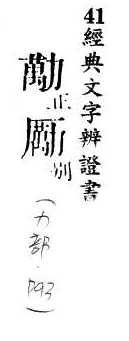 41經典文字辨證書
勱正勵別
(力部.P93)